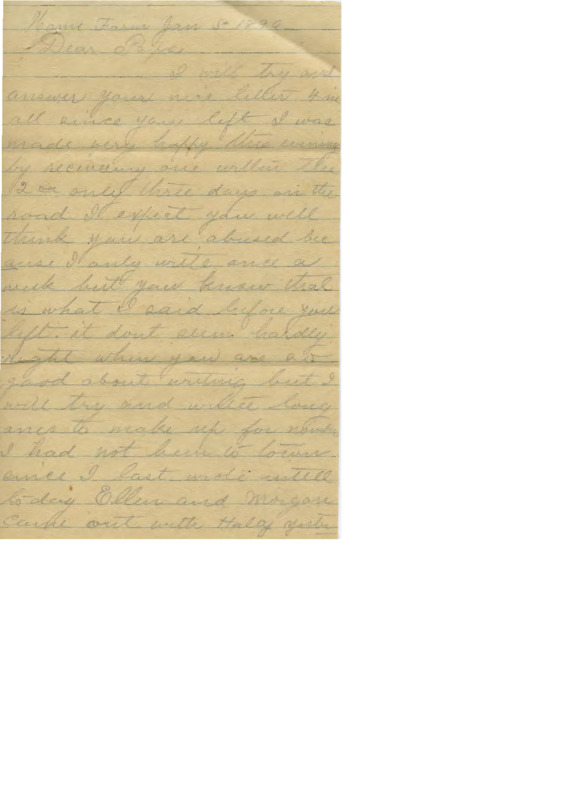 Home Farm Jan 5th 189
Dear Papa
I will try and
answer your nice letter
all since you left I was
made very happy this evening
by recieveing one written the
2nd only three days on the
road I expect you will
think you are abused bec
ause I only write once a
week but you know that
is what I said before you
left. it dont seem hardly
right when you are so
good about writing but I
will try and write long
ones to make up for
I had not been to town
since I last wrote untill
today Ellen and Morgan
came out with yester